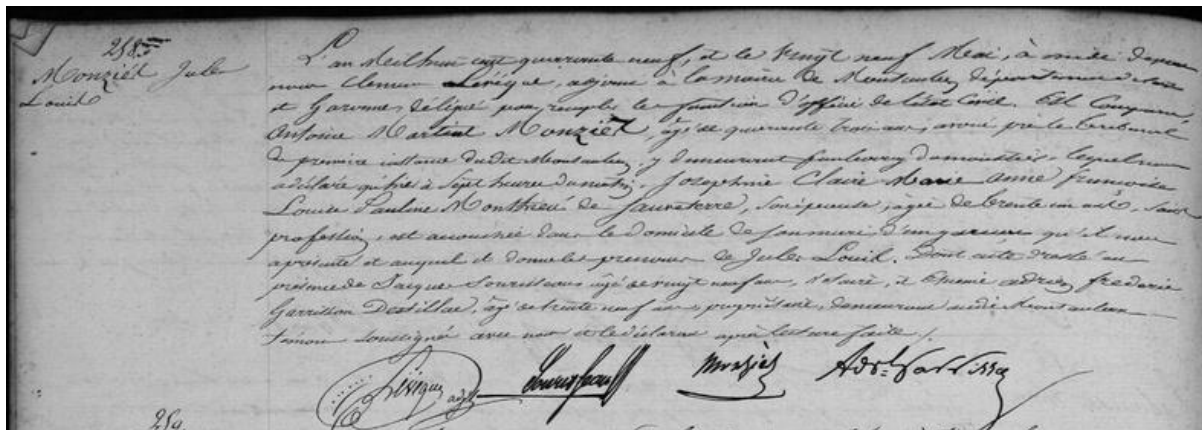 258
Monziés Jules
Louis
L'an Mil huit cent quarante neuf, et le Vingt neuf Mai, à midi devant
nous Clément Lévêque, adjoint à la mairie de Montauban, département de Tarn
et Garonne, délégué pour remplir les fonctions d'officier de l'état Civil. Est Comparu
Antoine Martial Monziés, âgé de quarante trois ans, avoué près le tribunal
de première instance dudit Montauban, y demeurant faubourg du moustier, lequel nous
a déclaré qu'hier à Sept heures du matin, Joséphine Claire Marie Anne françoise
Louise Pauline de Sauveterre, Son épouse, âgée de trente un ans, Sans
profession, est accouchée dans le domicile de son mari d'un garçon qu'il nous
a présenté et auquel il donne les prénoms de Jules Louis. Dont acte dressé en
présence de âgé de vingt neuf ans, notaire, et Etienne adrien frédéric
Garrisson Destillac, âgé de trente neuf ans, propriétaire, demeurant audit Montauban
témoins soussignés avec nous et le déclarant après lecture faite.
Lévêque adjt Monziés Adr. Garrisson
259